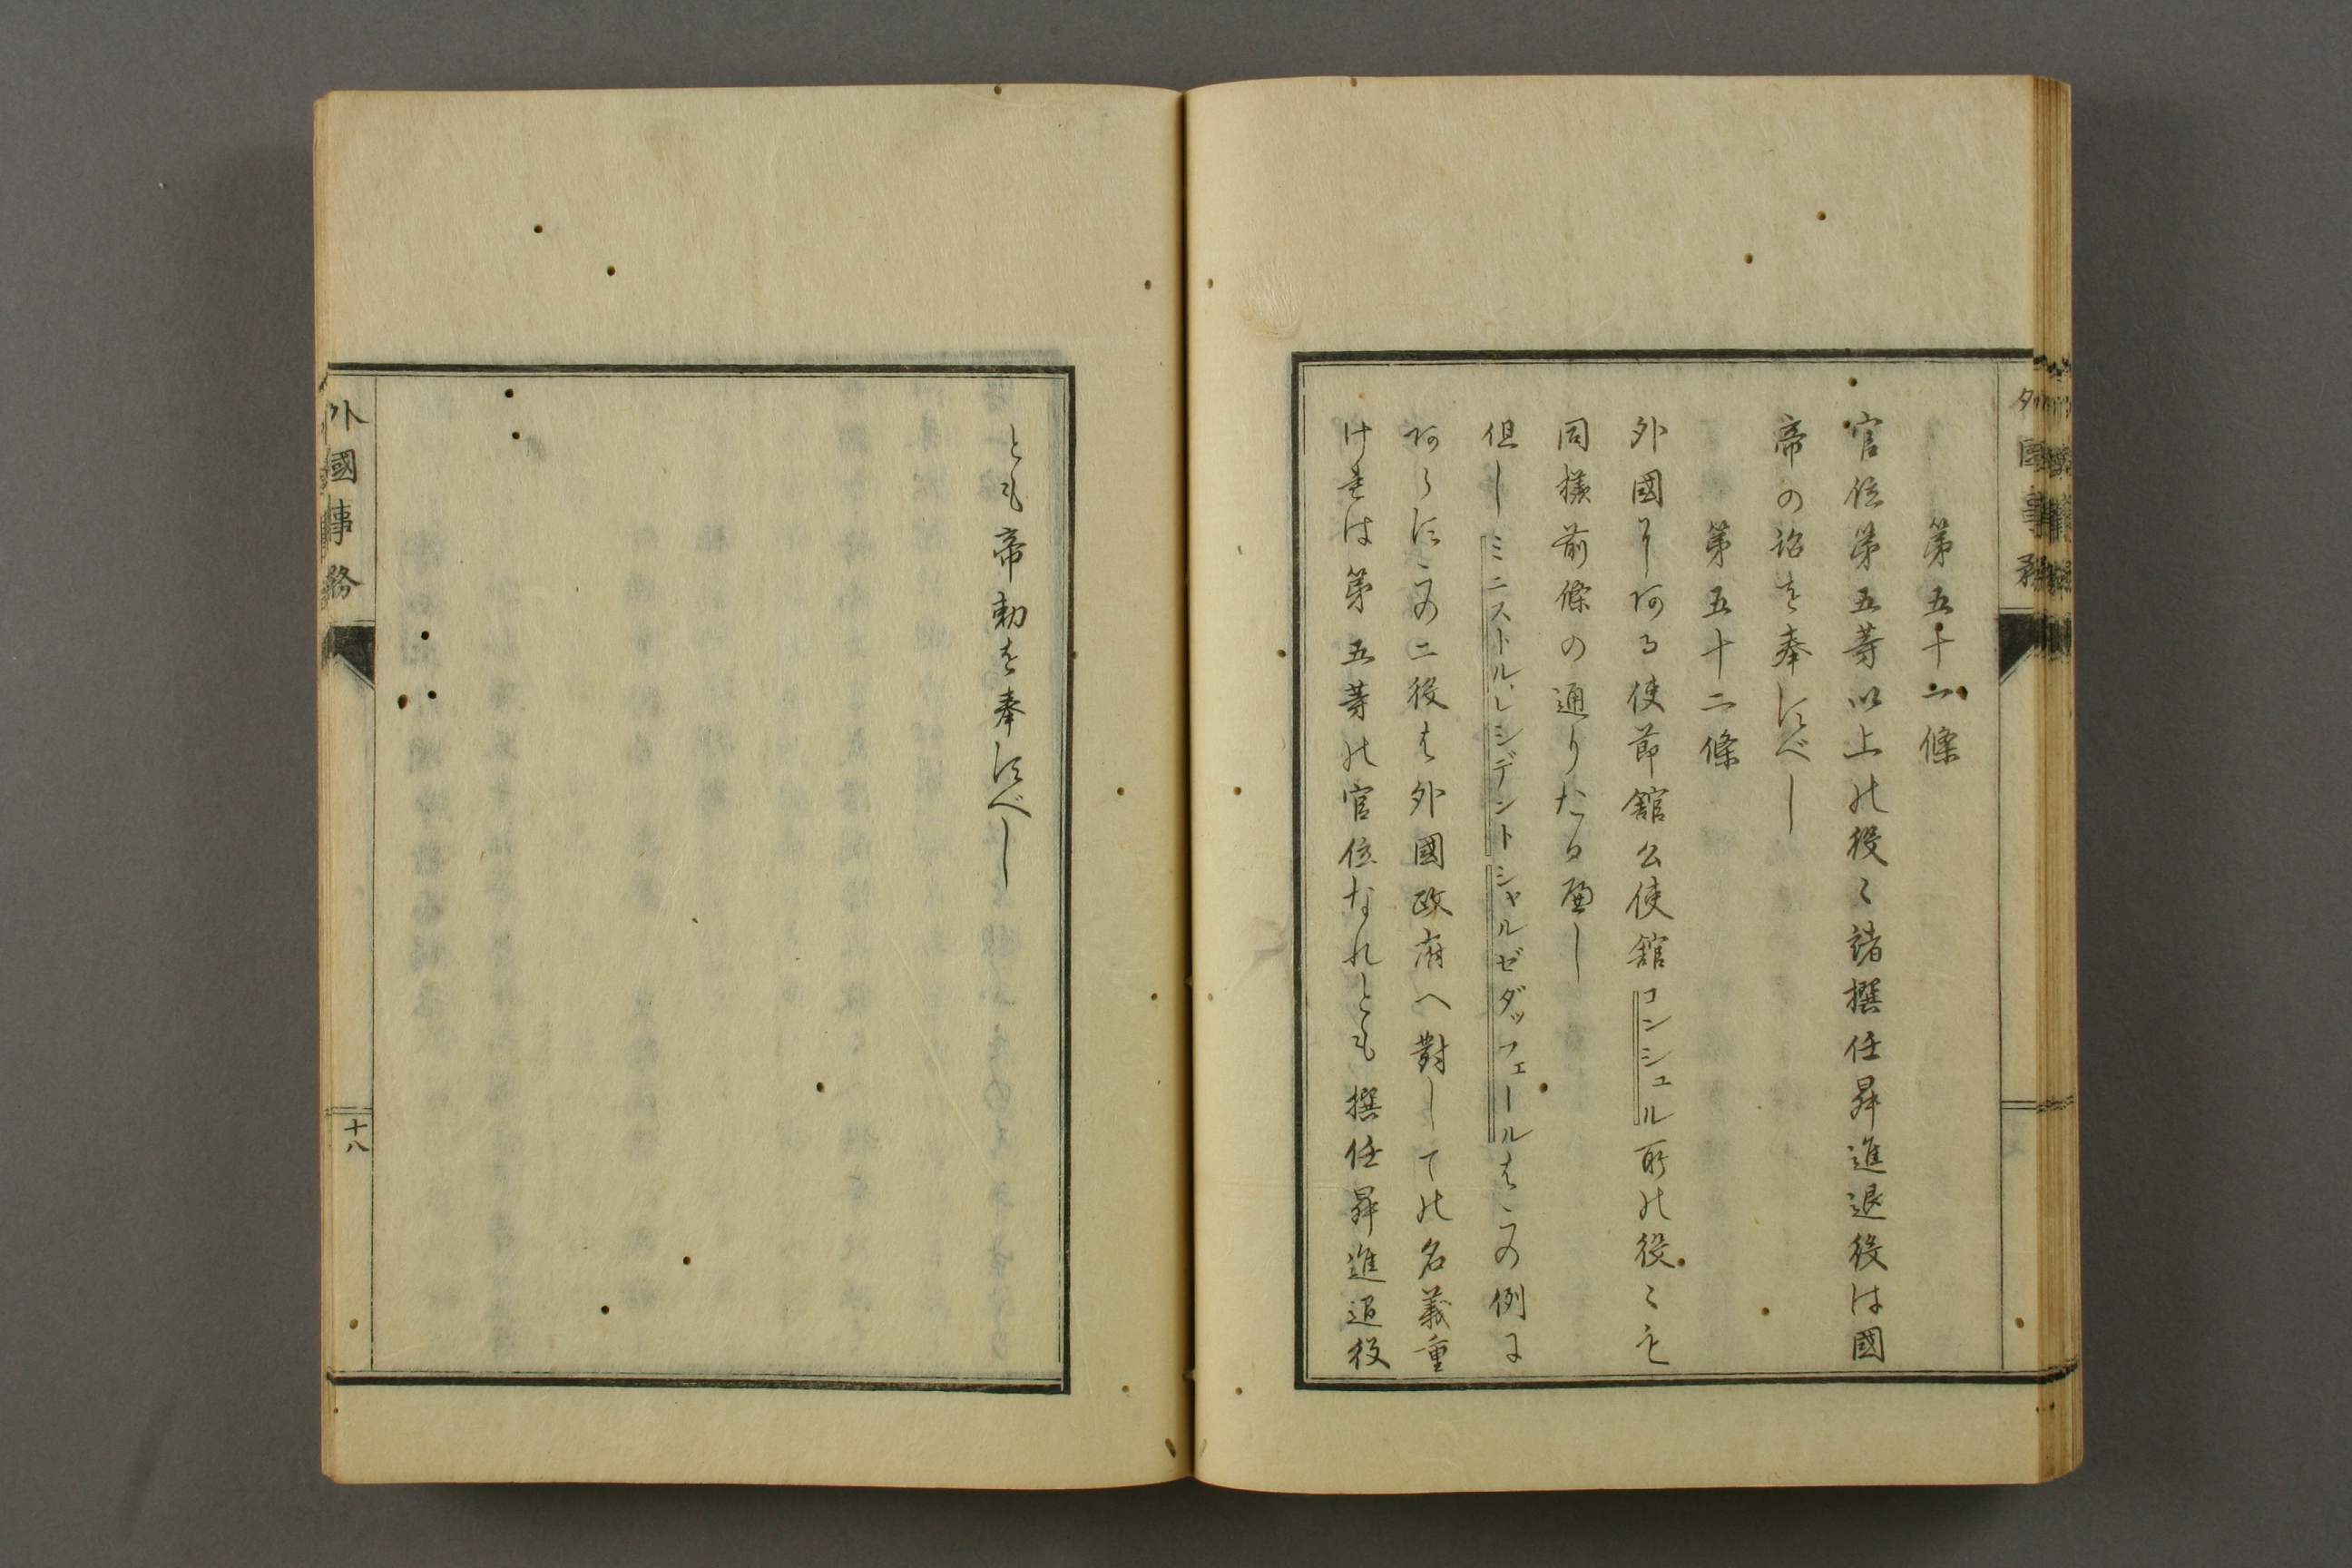 第五十一條
官位第五等以上の役々諸撰任昇進退役は國
帝の詔を奉すべし
第五十二條
外國にある使節舘公使舘コンシュル所の役々も
同様前條の通りたる可し
但しミニストル、レシデントシャルゼダッフェールはこの例に
あらすこの二役は外國政府へ對しての名義重
けれは第五等の官位なれとも撰任昇進退役
とも帝勅を奉すべし
外國事務
十八